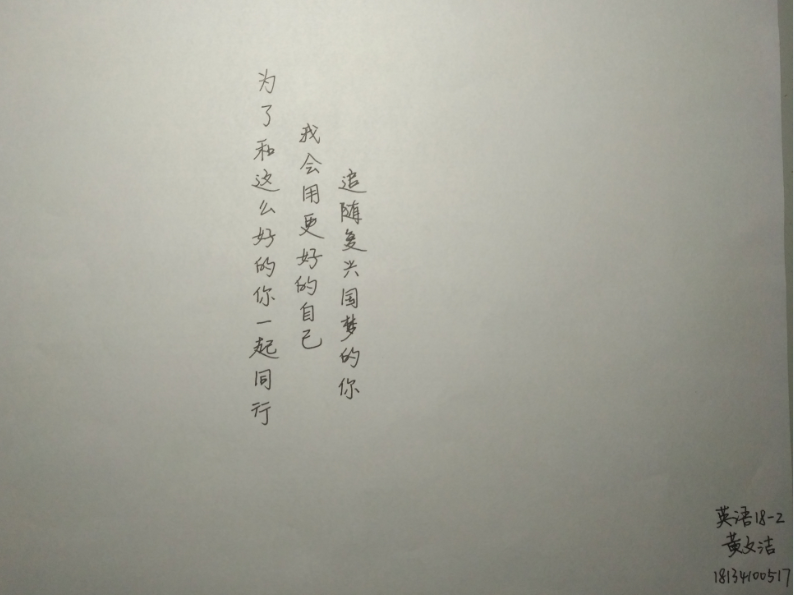 为了和这么好的你一起同行
我会用更好的自己
追随复兴国梦的你
英语18-2
黄文洁
18134100517